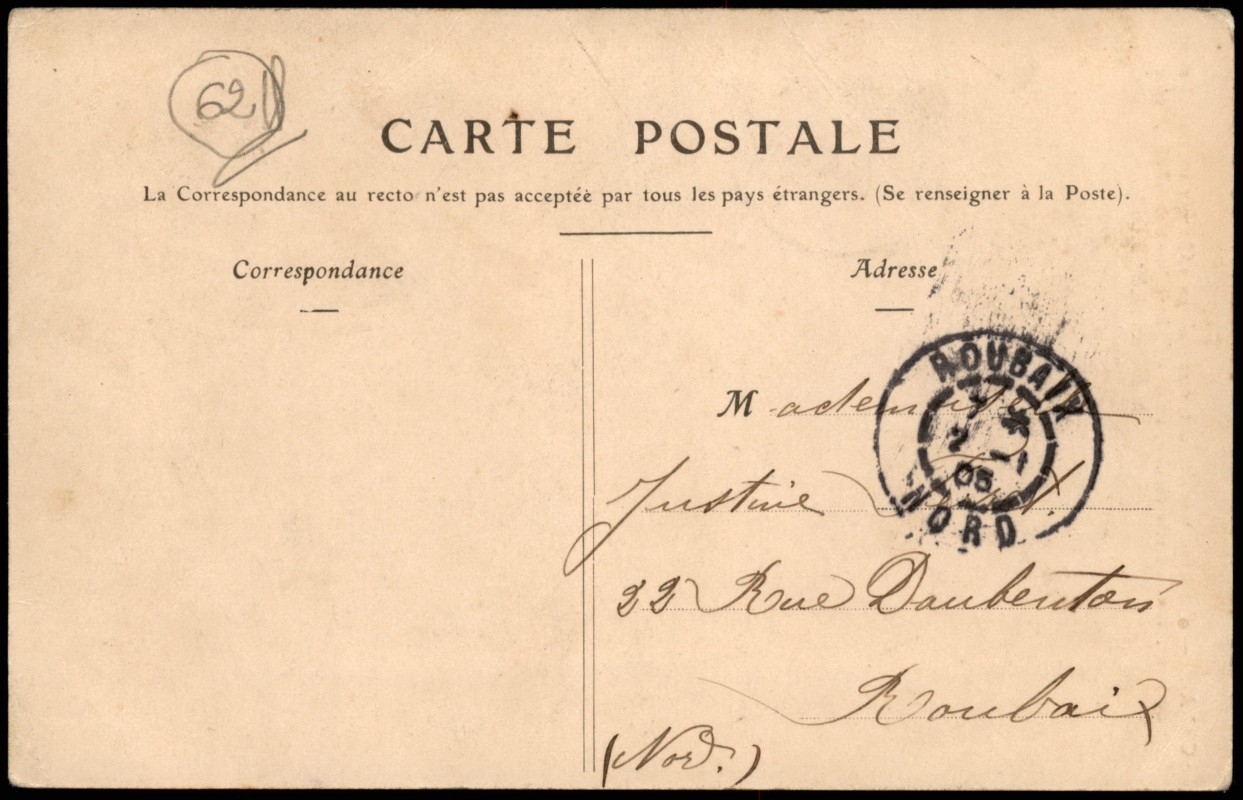 62
CARTE POSTALE
La Correspondance au recto n'est pas acceptéè par tous les pays étrangers. (Se renseigner à la Poste).
Correspondance
Adresse
ROUBAIX
2 -11
05
NORD
Mademoiselle
Justine
22 Rue Daubenton
Roubaix
(Nord.)